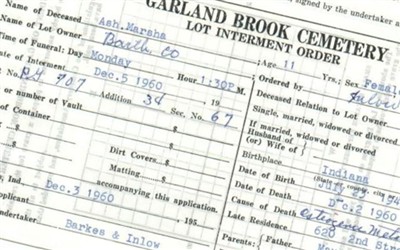 signed by the undertaker a
GARLAND BROOK CEMETERY
LOT INTERMENT ORDER
Name of Deceased Ash, Marsha Age 11 Yrs.; Sex Female
Name of Lot Owner Barth. Co Ordered by
Time of Funeral; Day Monday Hour 1:30P M. Deceased Relation to Lot Owner
Date of Interment Dec.5 1960 , 19 Single, married, widowed or divorced
707 Addition 38 Sec. No. 67 If married, widowed or divorced
or number of Vault Husband
(or) Wife of
of Container $ Birthplace
$ Indiana
Dirt Covers $ Date of Birth July
Matting $ Date of Death Dec. 2 1960
accompanying this application. Cause of Death
Ind., Dec.3 1960 , 195 Late Residence 628 2nd Str
Applicant
Undertaker Barkes & Inlow Parents: